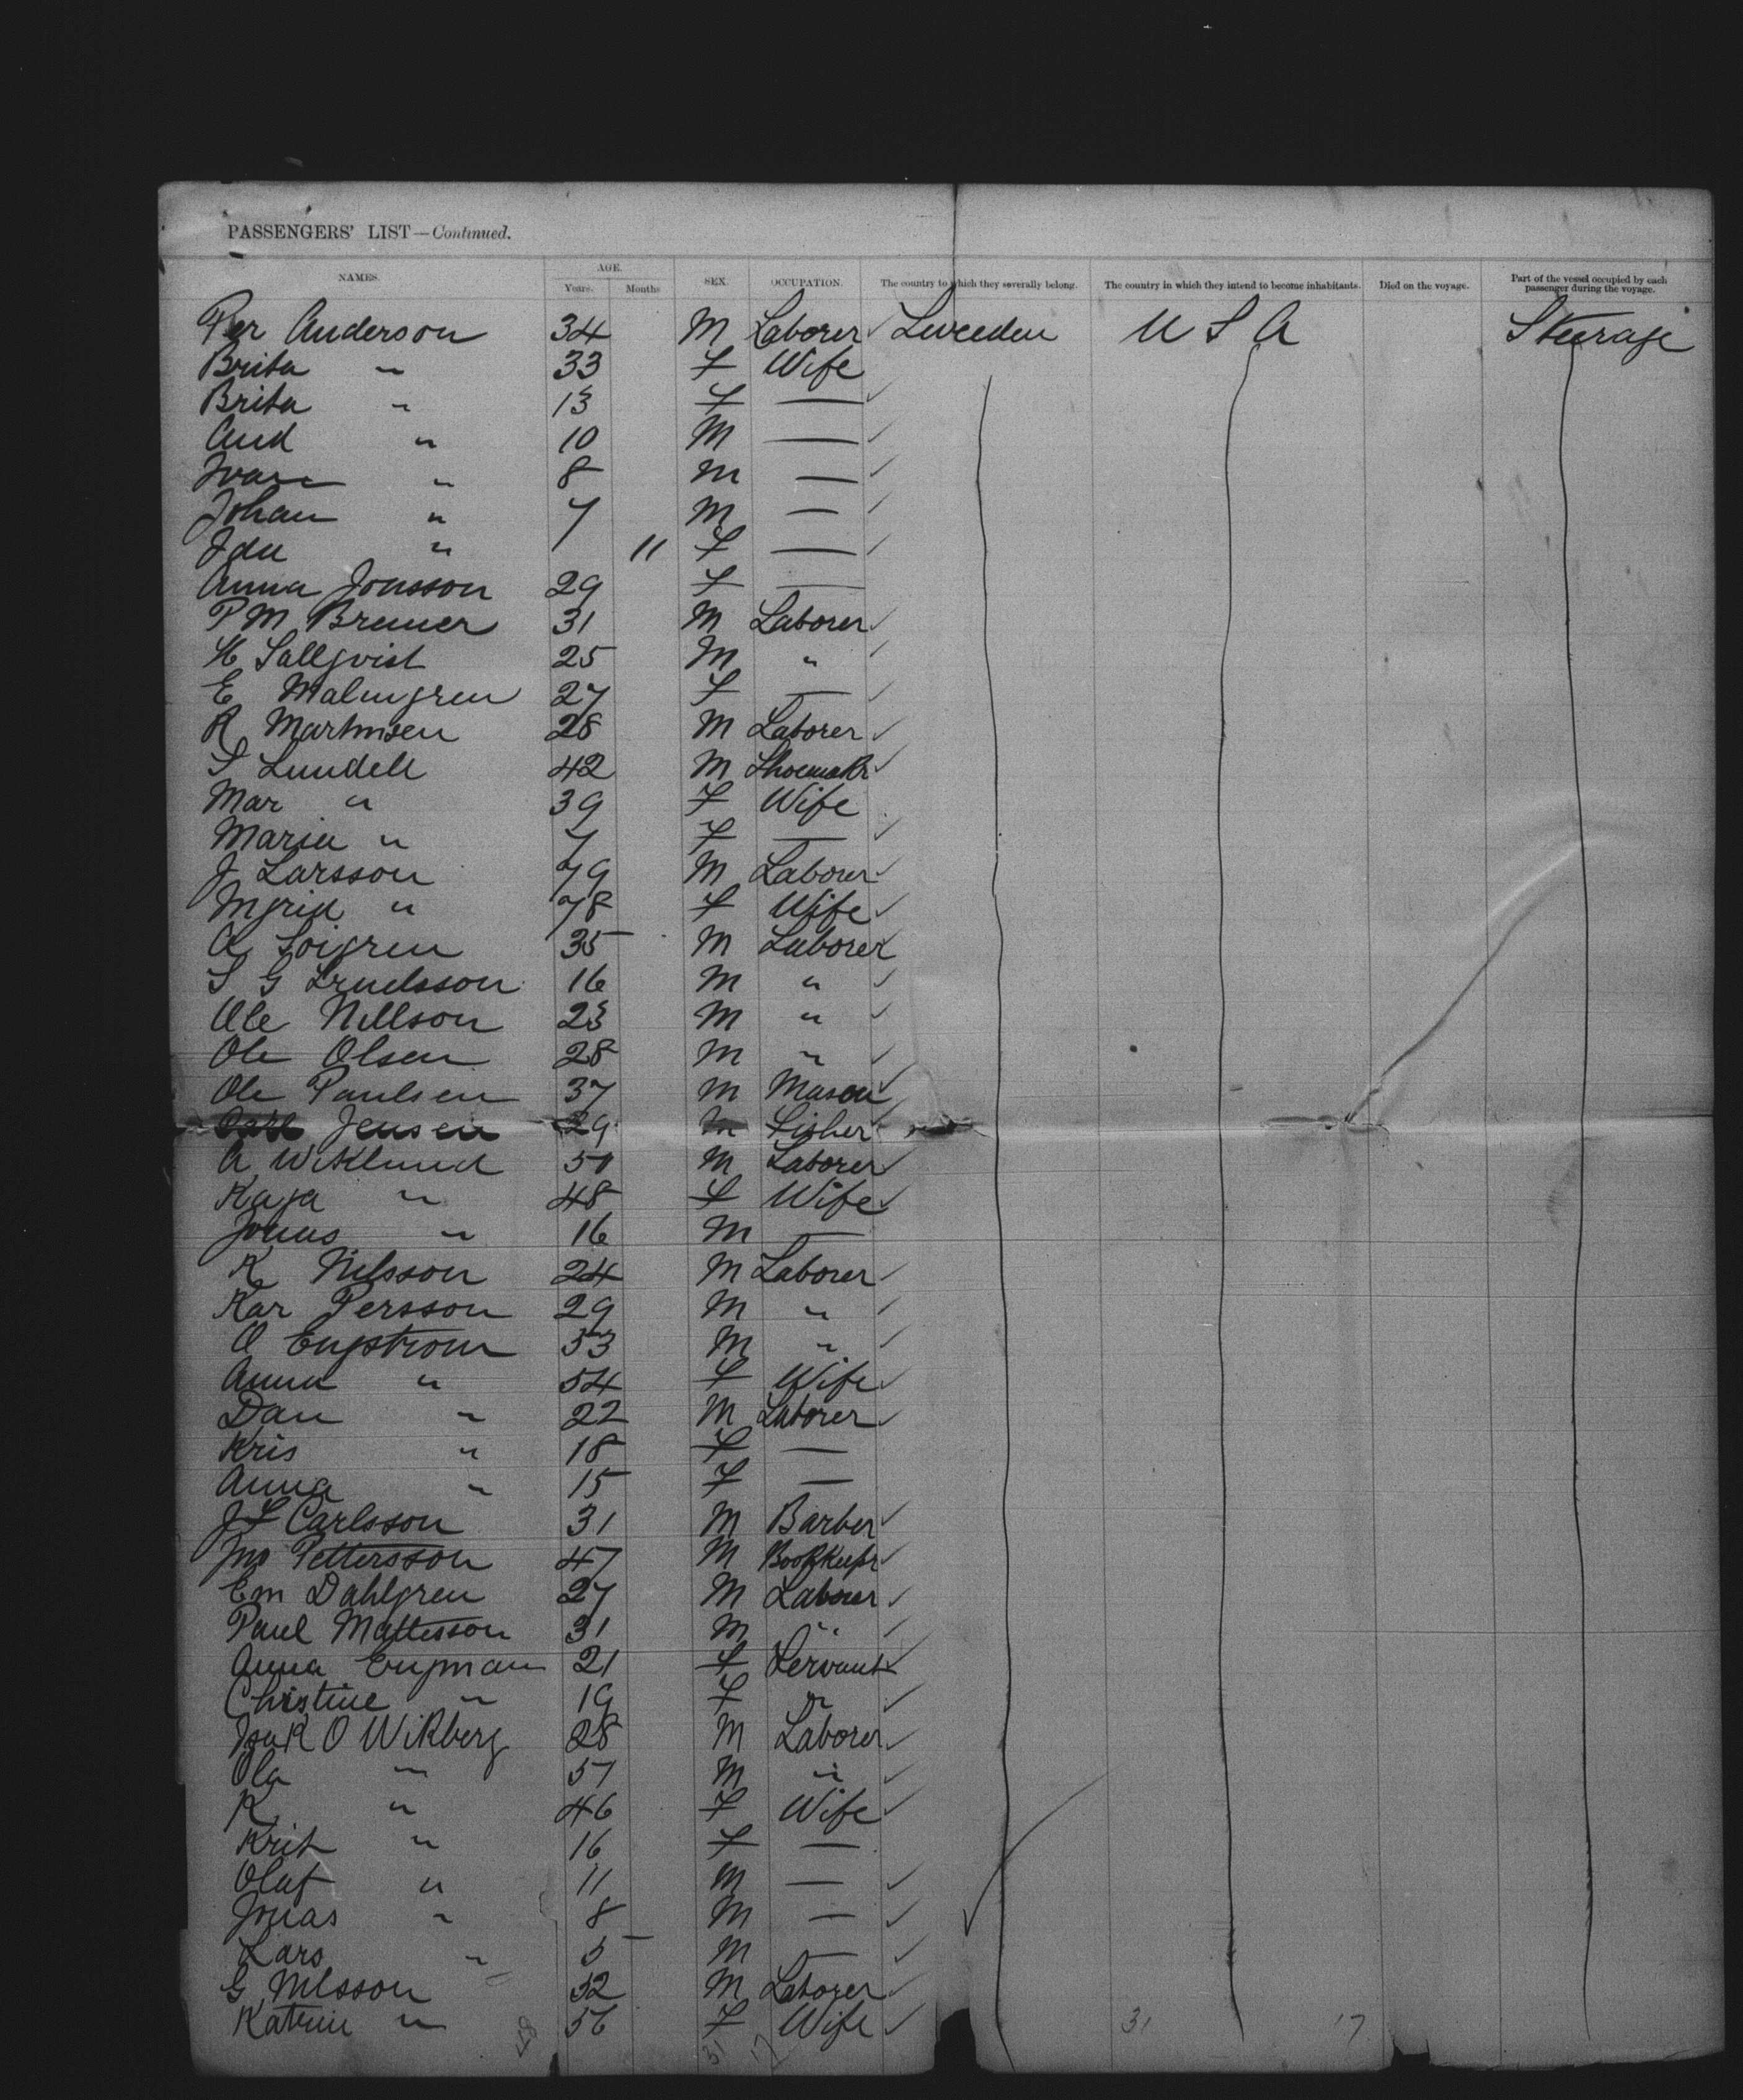 PASSENGERS' LIST—Continued.
NAMES. AGE. Years. Months SEX. OCCUPATION. The country to which they severally belong. The country in which they intend to become inhabitants. Died on the voyage. Part of the vessel occupied by each passenger during the voyage.
Per Anderson 34 M Laborer Sweeden U S A Steerage
Brita " 33 F Wife
Brita " 13 F —
And " 10 M —
Ivan " 8 M —
Johan " 7 M —
Ida " 11 F —
Anna Jonsson 29 F —
P M Bremer 31 M Laborer
H Sallqvist 25 M "
E Malmgren 27 F —
R Martinsen 28 M Laborer
S Lundell 42 M Shoemakr
Mar " 39 F Wife
Maria " 7 F —
J Larsson 79 M Laborer
Ingrid " 78 F Wife
A 35 M Laborer
S G 16 M "
Ole Nellson 23 M "
Ole Olsen 28 M "
Ole Paulsen 37 M Mason
Carl Jensen 29 M Fisher
A Wiklund 51 M Laborer
Kaja " 48 F Wife
Jonas " 16 M —
K Nilsson 24 M Laborer
Kar Persson 29 M "
O Engstrom 53 M "
Anna " 54 F Wife
Dan " 22 M Laborer
Kris " 18 F —
Anna " 15 F —
J F Carlsson 31 M Barber
Jno Pettersson 47 M Bookkepr
Em Dahlgren 27 M Laborer
Paul Mattesson 31 M "
Anna Engman 21 F Servant
Christine " 19 F "
Isak O Wikberg 28 M Laborer
Ola " 57 M "
K " 46 F Wife
Krit " 16 F —
Olaf " 11 M —
Jonas " 8 M —
Lars " 5 M —
G Nilsson 52 M Laborer
Katrin " 56 F Wife
48 31 17 31 17